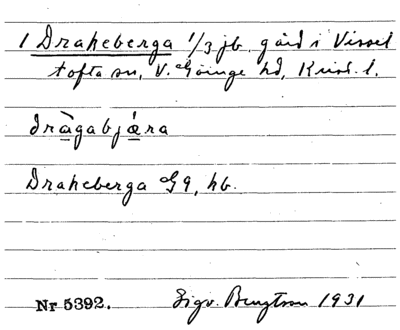 1 Drakeberga 1/3 jb. gård i Vissel
tofta sn, V. Göinge hd, Krist. l.
dràgabjǽra
Drakeberga G9, hb.
Nr 5392. Sigv. Bengtson 1931